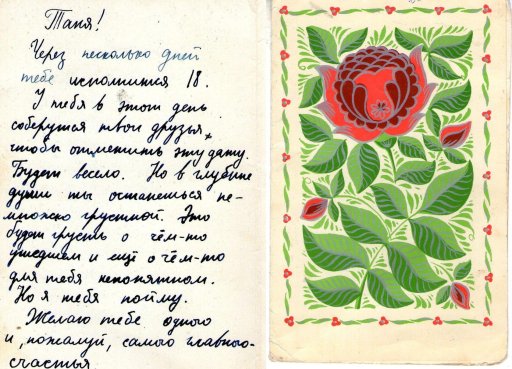 Таня!
Через несколько дней
тебе исполнится 18.
У тебя в этот день
соберутся твои друзья,
чтобы отметить эту дату.
Будет весело. Но в глубине
души ты останешься не-
множко грустной. Это
будет грусть о чём-то
ушедшем и ещё о чём-то
для тебя непонятном.
Но я тебя пойму.
Желаю тебе одного
и, пожалуй, самого главного-
счастья